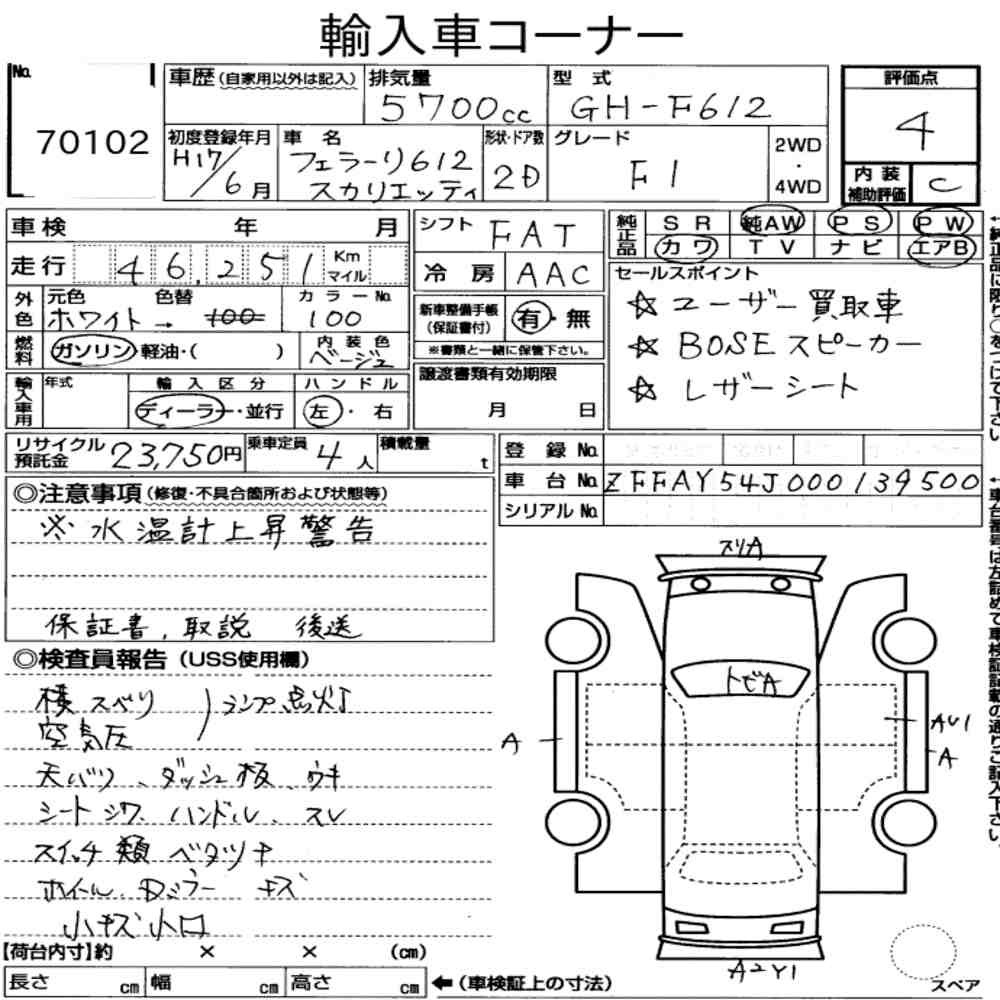 輸入車コーナー
No. 70102
車歴(自家用以外は記入)
排気量 5700cc
型式 GH-F612
評価点 4
初度登録年月 H17/6月
車名 フェラーリ612 スカリエッティ
形状・ドア数 2D
グレード F1
2WD・4WD
内装補助評価 C
車検 年 月
シフト FAT
純正品 SR 純AW PS PW
カワ TV ナビ エアB
走行 46,251 Km マイル
冷房 AAC
セールスポイント
☆ユーザー買取車
☆BOSEスピーカー
☆レザーシート
外色 元色 色替 カラーNo.
ホワイト→ 100 100
新車整備手帳(保証書付) 有・無
※書類と一緒に保管下さい。
燃料 ガソリン・軽油・( ) 内装色 ベージュ
譲渡書類有効期限
月 日
輸入車用 年式 輸入区分 ハンドル
ディーラー・並行 左・右
リサイクル預託金 23,750円 乗車定員 4人 積載量 t
登録No.
車台No. ZFFAY54J000139500
シリアルNo.
◎注意事項(修復・不具合箇所および状態等)
※水温計上昇警告
保証書,取説 後送
◎検査員報告(USS使用欄)
横スベリ
空気圧 )ランプ点灯
天バリ、ダッシュ板、ウキ
シートシワ、ハンドル、スレ
スイッチ類ベタツキ
ホイール、Dミラー キズ
小キズ小凹
スリA
トビA
A
AU1
A
A2Y1
【荷台内寸】約 × × (cm)
長さ cm 幅 cm 高さ cm ←(車検証上の寸法)
スペア
←純正品に限り○をつけて下さい。
←車台番号は左詰めで車検証記載の通りご記入下さい。